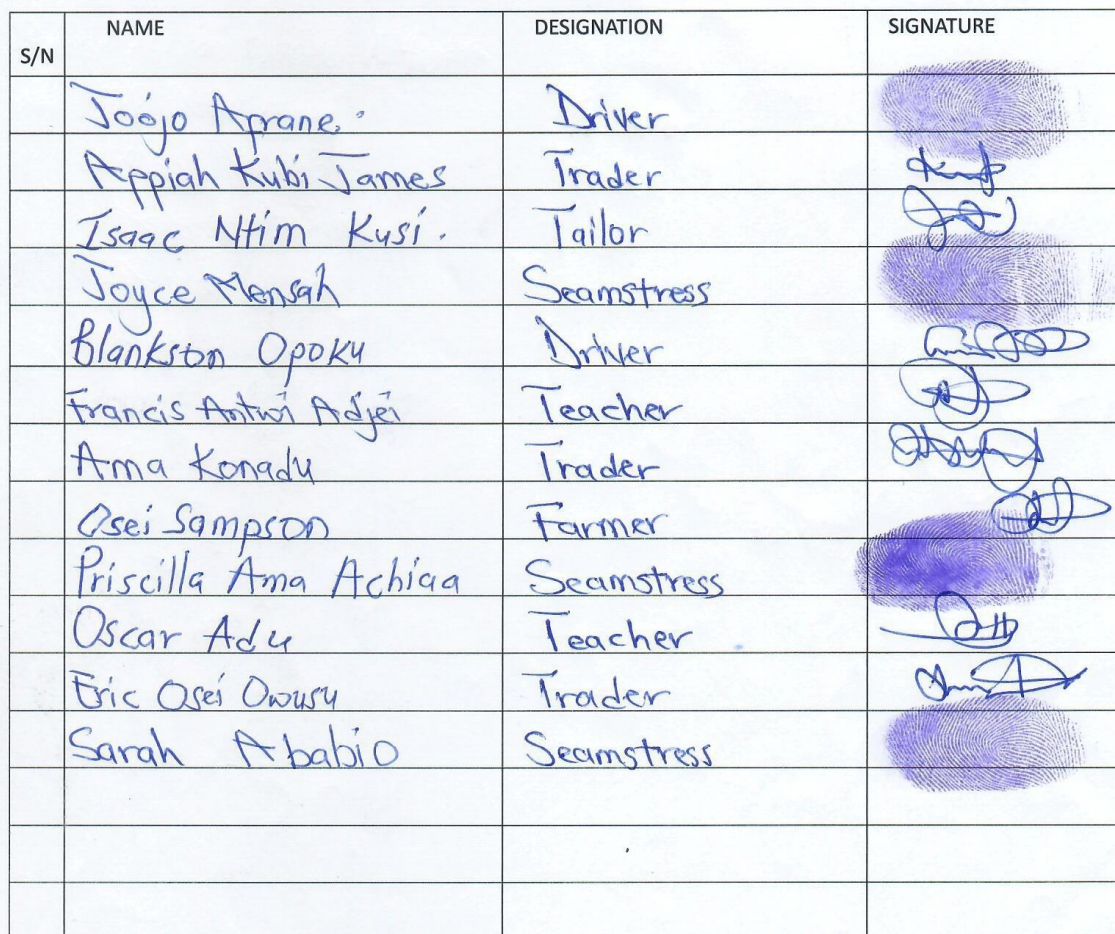 S/N NAME DESIGNATION SIGNATURE
Joojo Aprane. Driver
Appiah Kubi James Trader
Isaac Ntim Kusi. Tailor
Joyce Mensah Seamstress
Blankson Opoku Driver
Francis Antwi Adjei Teacher
Ama Konadu Trader
Osei Sampson Farmer
Priscilla Ama Achiaa Seamstress
Oscar Adu Teacher
Eric Osei Owusu Trader
Sarah Ababio Seamstress